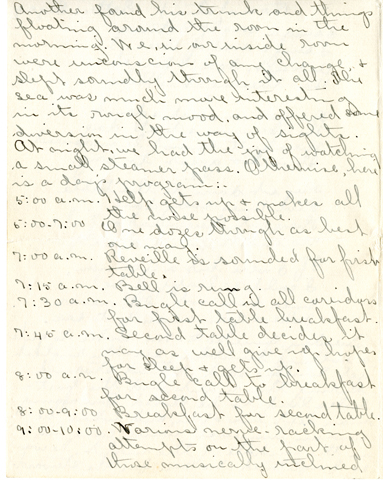 Another found his trunk and things
floating around the room in the
morning. We, in our inside room
were unconscious of any change, &
slept soundly through it all. The
sea was much more interesting
in its rough mood, and offered some
diversion in the way of sights.
At night, we had the joy of watching
a small steamer pass. Otherwise, here
is a day's program:
5:00 a.m. Help gets up & makes all
the noise possible.
5:00-7:00 One dozes through as best
one may.
7:00 a.m. Reveille is sounded for first
table.
7:15 a.m. Bell is rung.
7:30 a.m. Bugle call in all corridors
for first table breakfast.
7:45 a.m. Second table decides it
may as well give up hopes
for sleep & gets up.
8:00 a.m. Bugle call to breakfast
for second table.
8:00-9:00 Breakfast for second table.
9:00-10:00. Various nerve-racking
attempts on the part of
those musically inclined